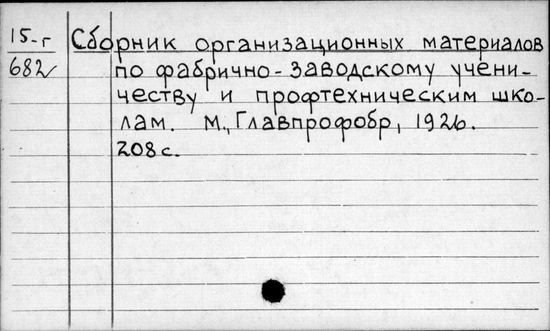 15-г Сборник организационных материалов
682 по фабрично-заводскому учени-
честву и профтехническим шко-
лам. М., Главпрофобр, 1926.
208 с.